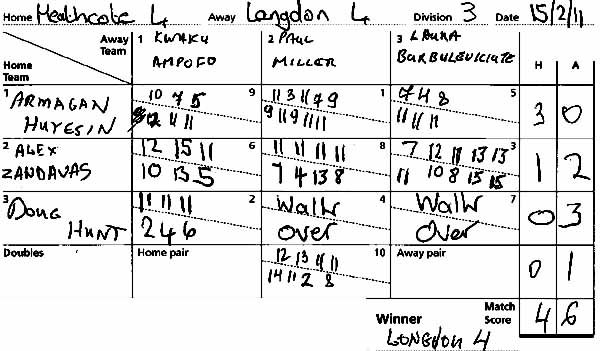 Home Heathcote 4 Away Longdon 4 Division 3 Date 15/2/11
Away Team 1 KWAKU AMPOFO 2 PAUL MILLER 3 LAURA BURBULEVICIUTE H A
Home Team
1 ARMAGAN HUYESIN 9 10 7 5 1 11 3 11 7 9 5 7 4 8 3 0
12 11 11 9 11 9 11 11 11 11 11
2 ALEX ZANDAVAS 6 12 15 11 8 11 11 11 11 3 7 12 11 13 13 1 2
10 13 5 7 4 13 8 11 10 8 15 15
3 DOUG HUNT 2 11 11 11 4 Walk Over 7 Walk Over 0 3
2 4 6
Doubles Home pair 10 Away pair 0 1
12 13 4 11
14 11 2 8
Winner Match Score 4 6
LONGDON 4